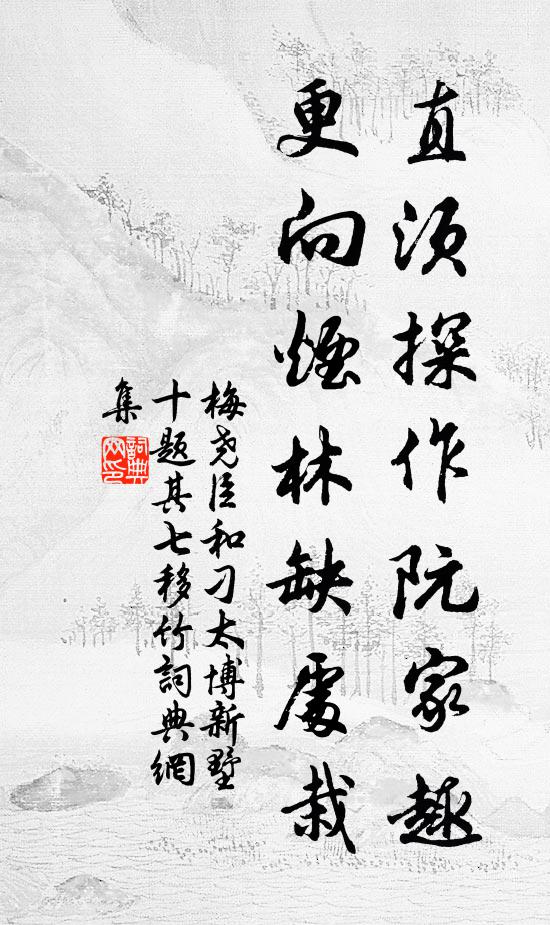 直须探作阮家趣
更向烟林缺處栽
梅尧臣和刁太博新墅
十题其七移竹詞典網
集
詞典网印